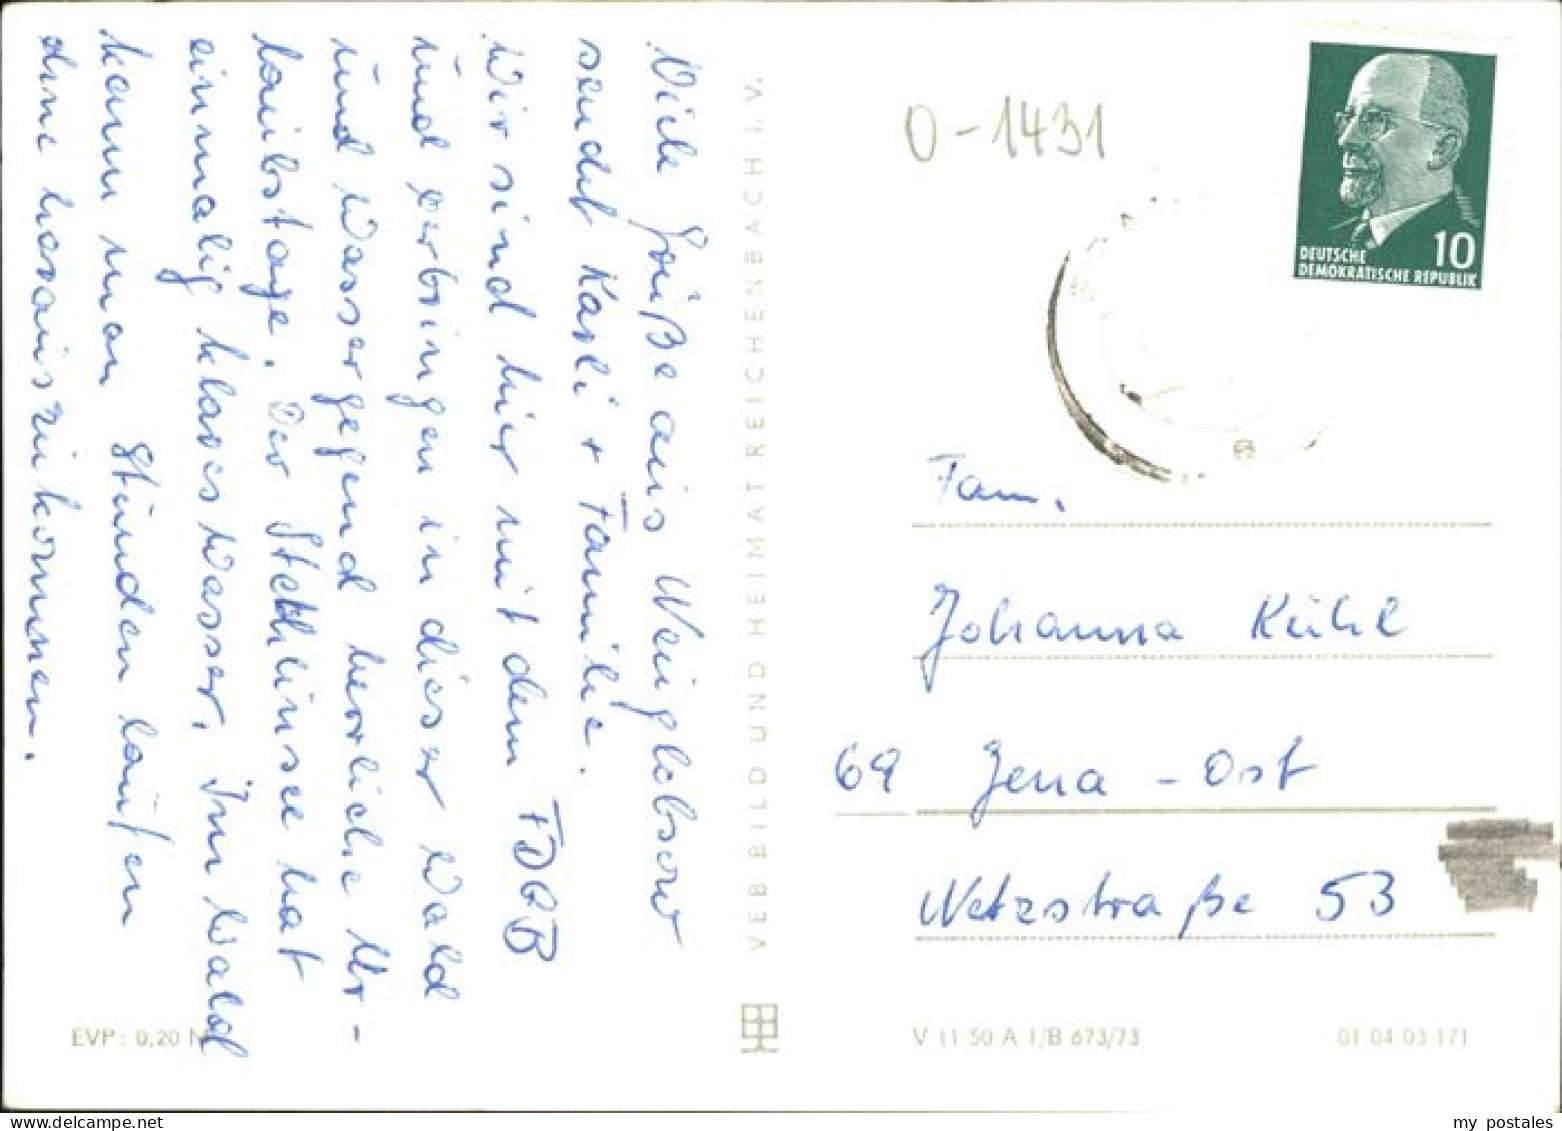 Viele Grüße aus Neuglobsow
sendet Karli + Familie.
Wir sind hier mit dem FDGB
und verbringen in dieser Wald
und Wassergegend herrliche Ur-
laubstage. Der Stechlinsee hat
einmalig klares Wasser. Im Wald
kann man Stunden laufen
ohne herauszukommen.
EVP: 0,20 M
VEB BILD UND HEIMAT REICHENBACH i. V.
O-1431
DEUTSCHE
DEMOKRATISCHE REPUBLIK
10
Fam.
Johanna Kühl
69 Jena - Ost
Netzstraße 53
V 11 50 A 1/B 673/73
01 04 03 171
my postales